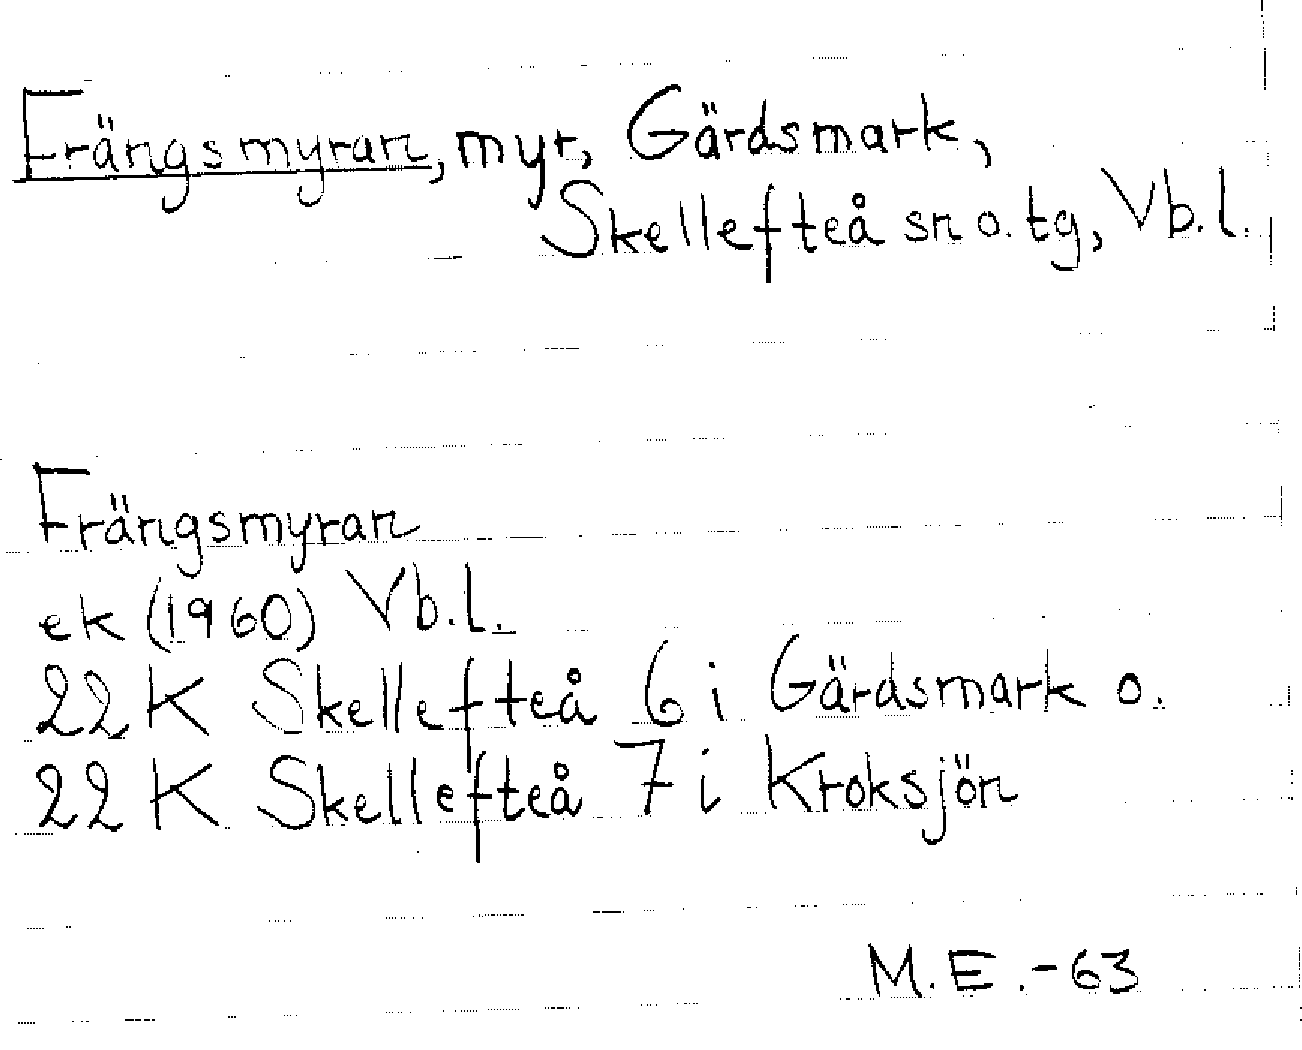 Frängsmyran, myr, Gärdsmark,
Skellefteå sn o. tg, Vb.l.
Frängsmyran
ek (1960) Vb.l.
22 K Skellefteå 6 i Gärdsmark o.
22 K Skellefteå 7 i Kroksjön
M.E.-63